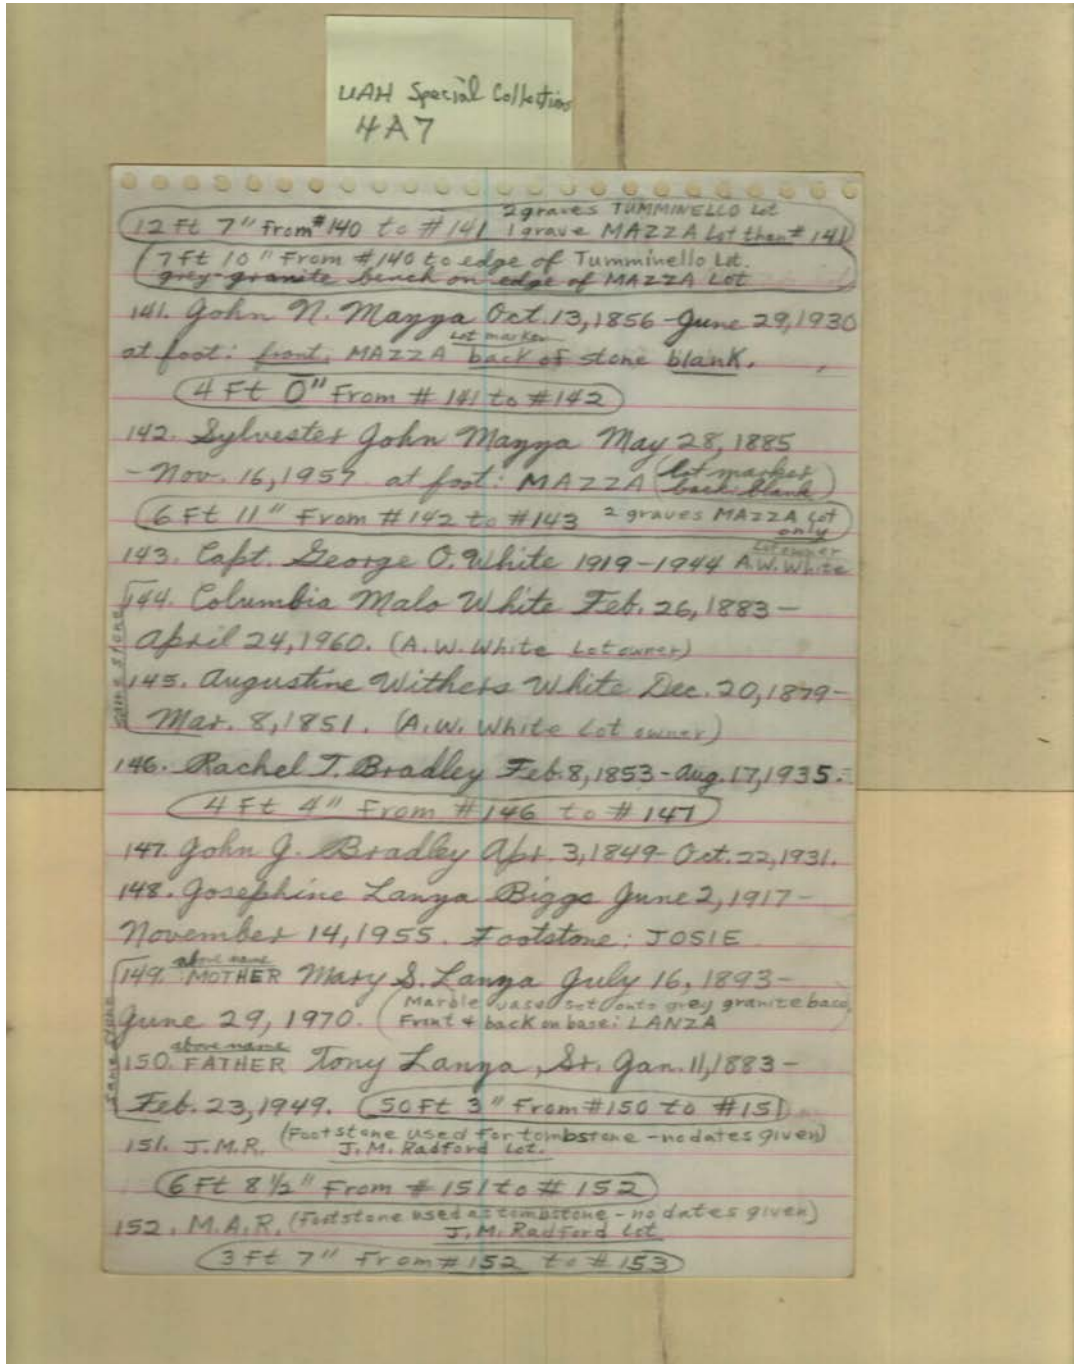 UAH Special Collection
4A7
2 graves TUMMINELLO Lot
12 Ft 7" from #140 to #141 1 grave MAZZA Lot then #141
7 ft 10" From #140 to edge of Tumminello Lot.
grey-granite bench on edge of MAZZA Lot
141. John N. Mazza Oct. 13, 1856 - June 29, 1930
Lot marker
at foot: front: MAZZA back of stone blank.
4 Ft 0" From # 141 to #142
142. Sylvester John Mazza May 28, 1885
- Nov. 16, 1957. at foot: MAZZA (lot marker
back: blank)
6 Ft 11" From #142 to #143 2 graves MAZZA Lot
only
Lot owner
143. Capt. George O. White 1919-1944 A.W. White
144. Columbia Malo White Feb. 26, 1883 -
April 24, 1960. (A.W. White Lot owner)
same stone
145. Augustine Withers White Dec. 20, 1879 -
Mar. 8, 1851. (A.W. White Lot owner)
146. Rachel T. Bradley Feb. 8, 1853 - Aug. 17, 1935.
4 Ft 4" From #146 to # 147
147. John J. Bradley Apr. 3, 1849 - Oct. 22, 1931.
148. Josephine Lanza Biggs June 2, 1917 -
November 14, 1955. Footstone: JOSIE
above name
149. MOTHER Mary S. Lanza July 16, 1893 -
(Marble vase set onto grey granite base,
June 29, 1970. Front & back on base: LANZA
same stone
above name
150. FATHER Tony Lanza, Sr. Jan. 11, 1883 -
Feb. 23, 1949. 50 Ft 3" From #150 to #151
(Footstone used for tombstone - no dates given)
151. J.M.R. J.M. Radford Lot.
6 Ft 8 1/2" From # 151 to # 152
152. M.A.R. (Footstone used as tombstone - no dates given)
J.M. Radford Lot
3 Ft 7" From #152 to #153